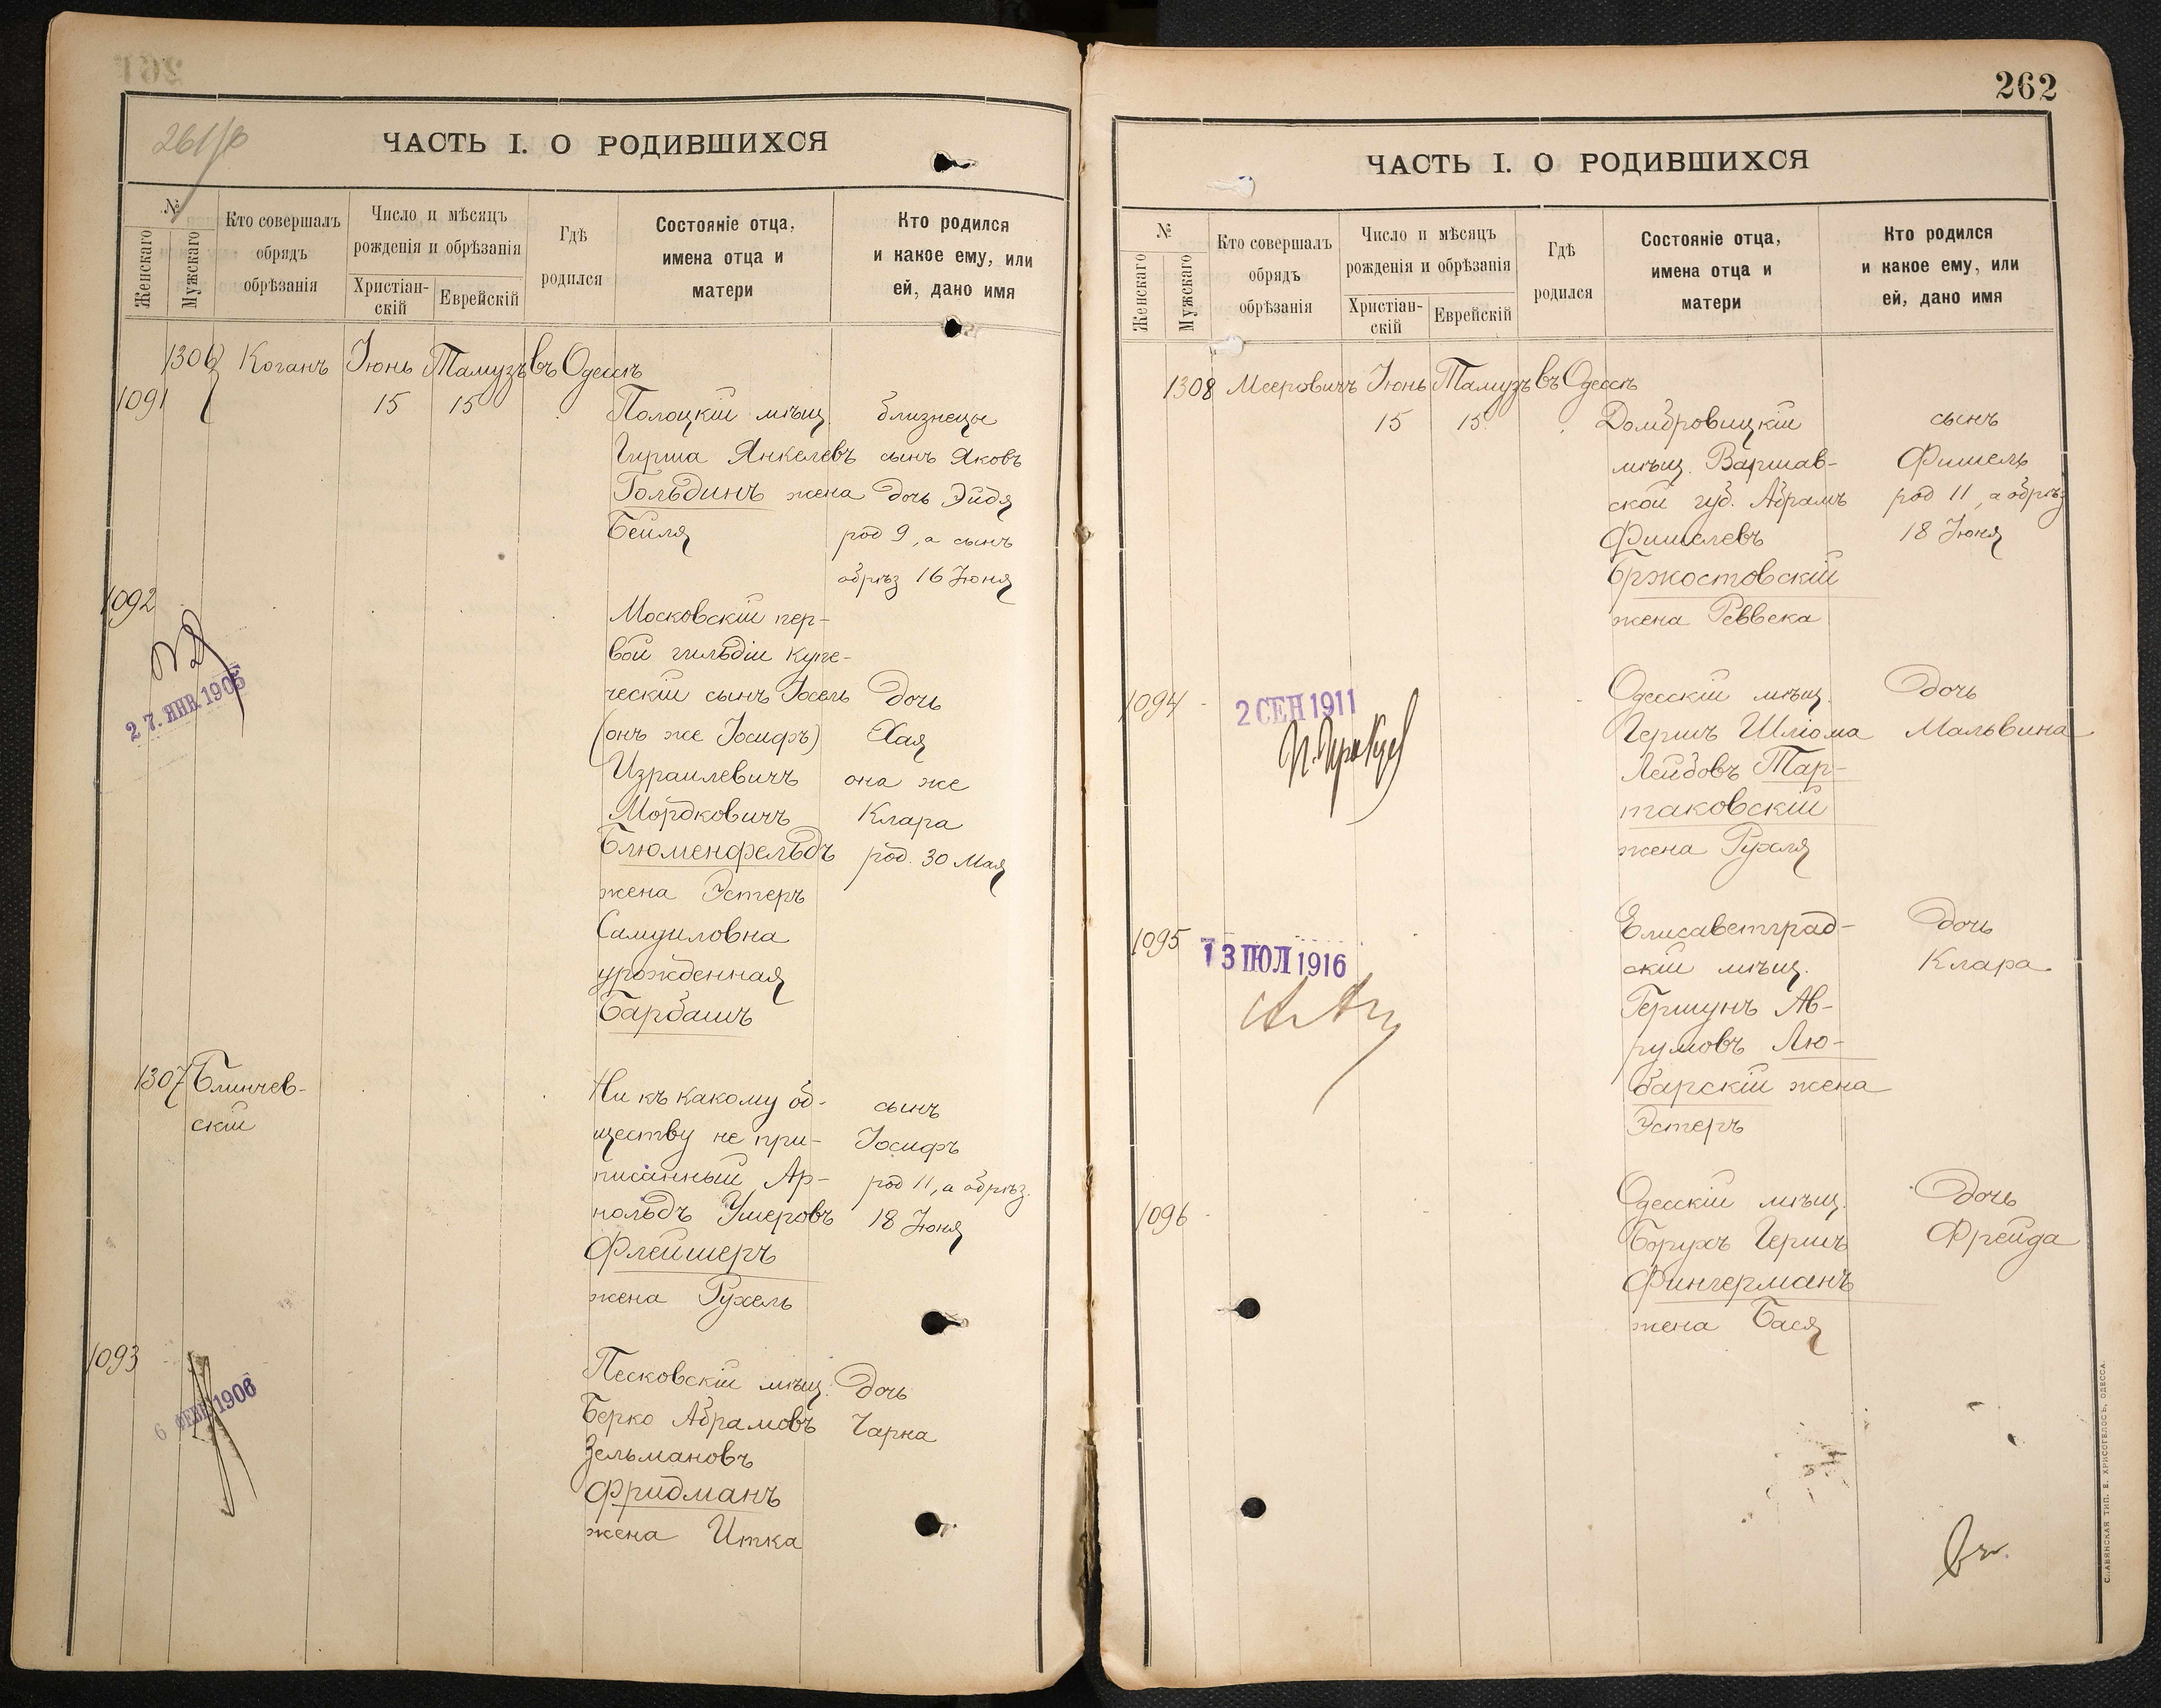 261/б
ЧАСТЬ I. О РОДИВШИХСЯ
№
Женскаго
Мужскаго
Кто совершалъ
обрядъ
обрѣзанія
Число и мѣсяцъ
рожденія и обрѣзанія
Христіан-
скій
Еврейскій
Гдѣ
родился
Состояніе отца,
имена отца и
матери
Кто родился
и какое ему, или
ей, дано имя
1306 Коганъ Іюнь Тамузъ въ Одессѣ
1091 15 15
Полоцкій мѣщ. близнецы
Гирша Янкелевъ сынъ Яковъ
Гольдинъ жена дочь Эйдя
Бейля род 9, а сынъ
обрѣз 16 Іюня
1092
Московскій пер-
вой гильдіи купе-
ческій сынъ Іосель дочь
(онъ же Іосифъ) Хая
Израилевичъ она же
Мордковичъ Клара
Блюменфельдъ род. 30 Мая
жена Эстеръ
Самуиловна
урожденная
Барбашъ
27. ЯНВ 1905
1307 Блинчев-
скій
Ни къ какому об- сынъ
ществу не при- Іосифъ
писанный Ар- род 11, а обрѣз.
нольдъ Умеровъ 18 Іюня
Флейшеръ
жена Рухель
1093
6 ФЕВ 1906
Песковскій мѣщ. дочь
Берко Абрамовъ Чарна
Зельмановъ
Фридманъ
жена Итка
262
ЧАСТЬ I. О РОДИВШИХСЯ
№
Женскаго
Мужскаго
Кто совершалъ
обрядъ
обрѣзанія
Число и мѣсяцъ
рожденія и обрѣзанія
Христіан-
скій
Еврейскій
Гдѣ
родился
Состояніе отца,
имена отца и
матери
Кто родился
и какое ему, или
ей, дано имя
1308 Мееровичъ Іюнь Тамузъ въ Одессѣ
15 15
Домбровицкій сынъ
мѣщ. Варшав- Фишель
ской губ. Абрамъ род 11, а обрѣз
Фишелевъ 18 Іюня
Бржостовскій
жена Реввека
1094
2 СЕН 1911
Одесскій мѣщ. дочь
Гершъ Шліома Мальвина
Лейбовъ Тар-
таковскій
жена Рухля
1095
13 ІЮЛ 1916
Елисаветград- дочь
скій мѣщ. Клара
Гершунъ Ав-
румовъ Лю-
барскій жена
Эстеръ
1096
Одесскій мѣщ. дочь
Борухъ Гершъ Фрейда
Фингерманъ
жена Бася
СЛАВЯНСКАЯ ТИП. Е. ХРИСОГЕЛОСЪ, ОДЕССА.